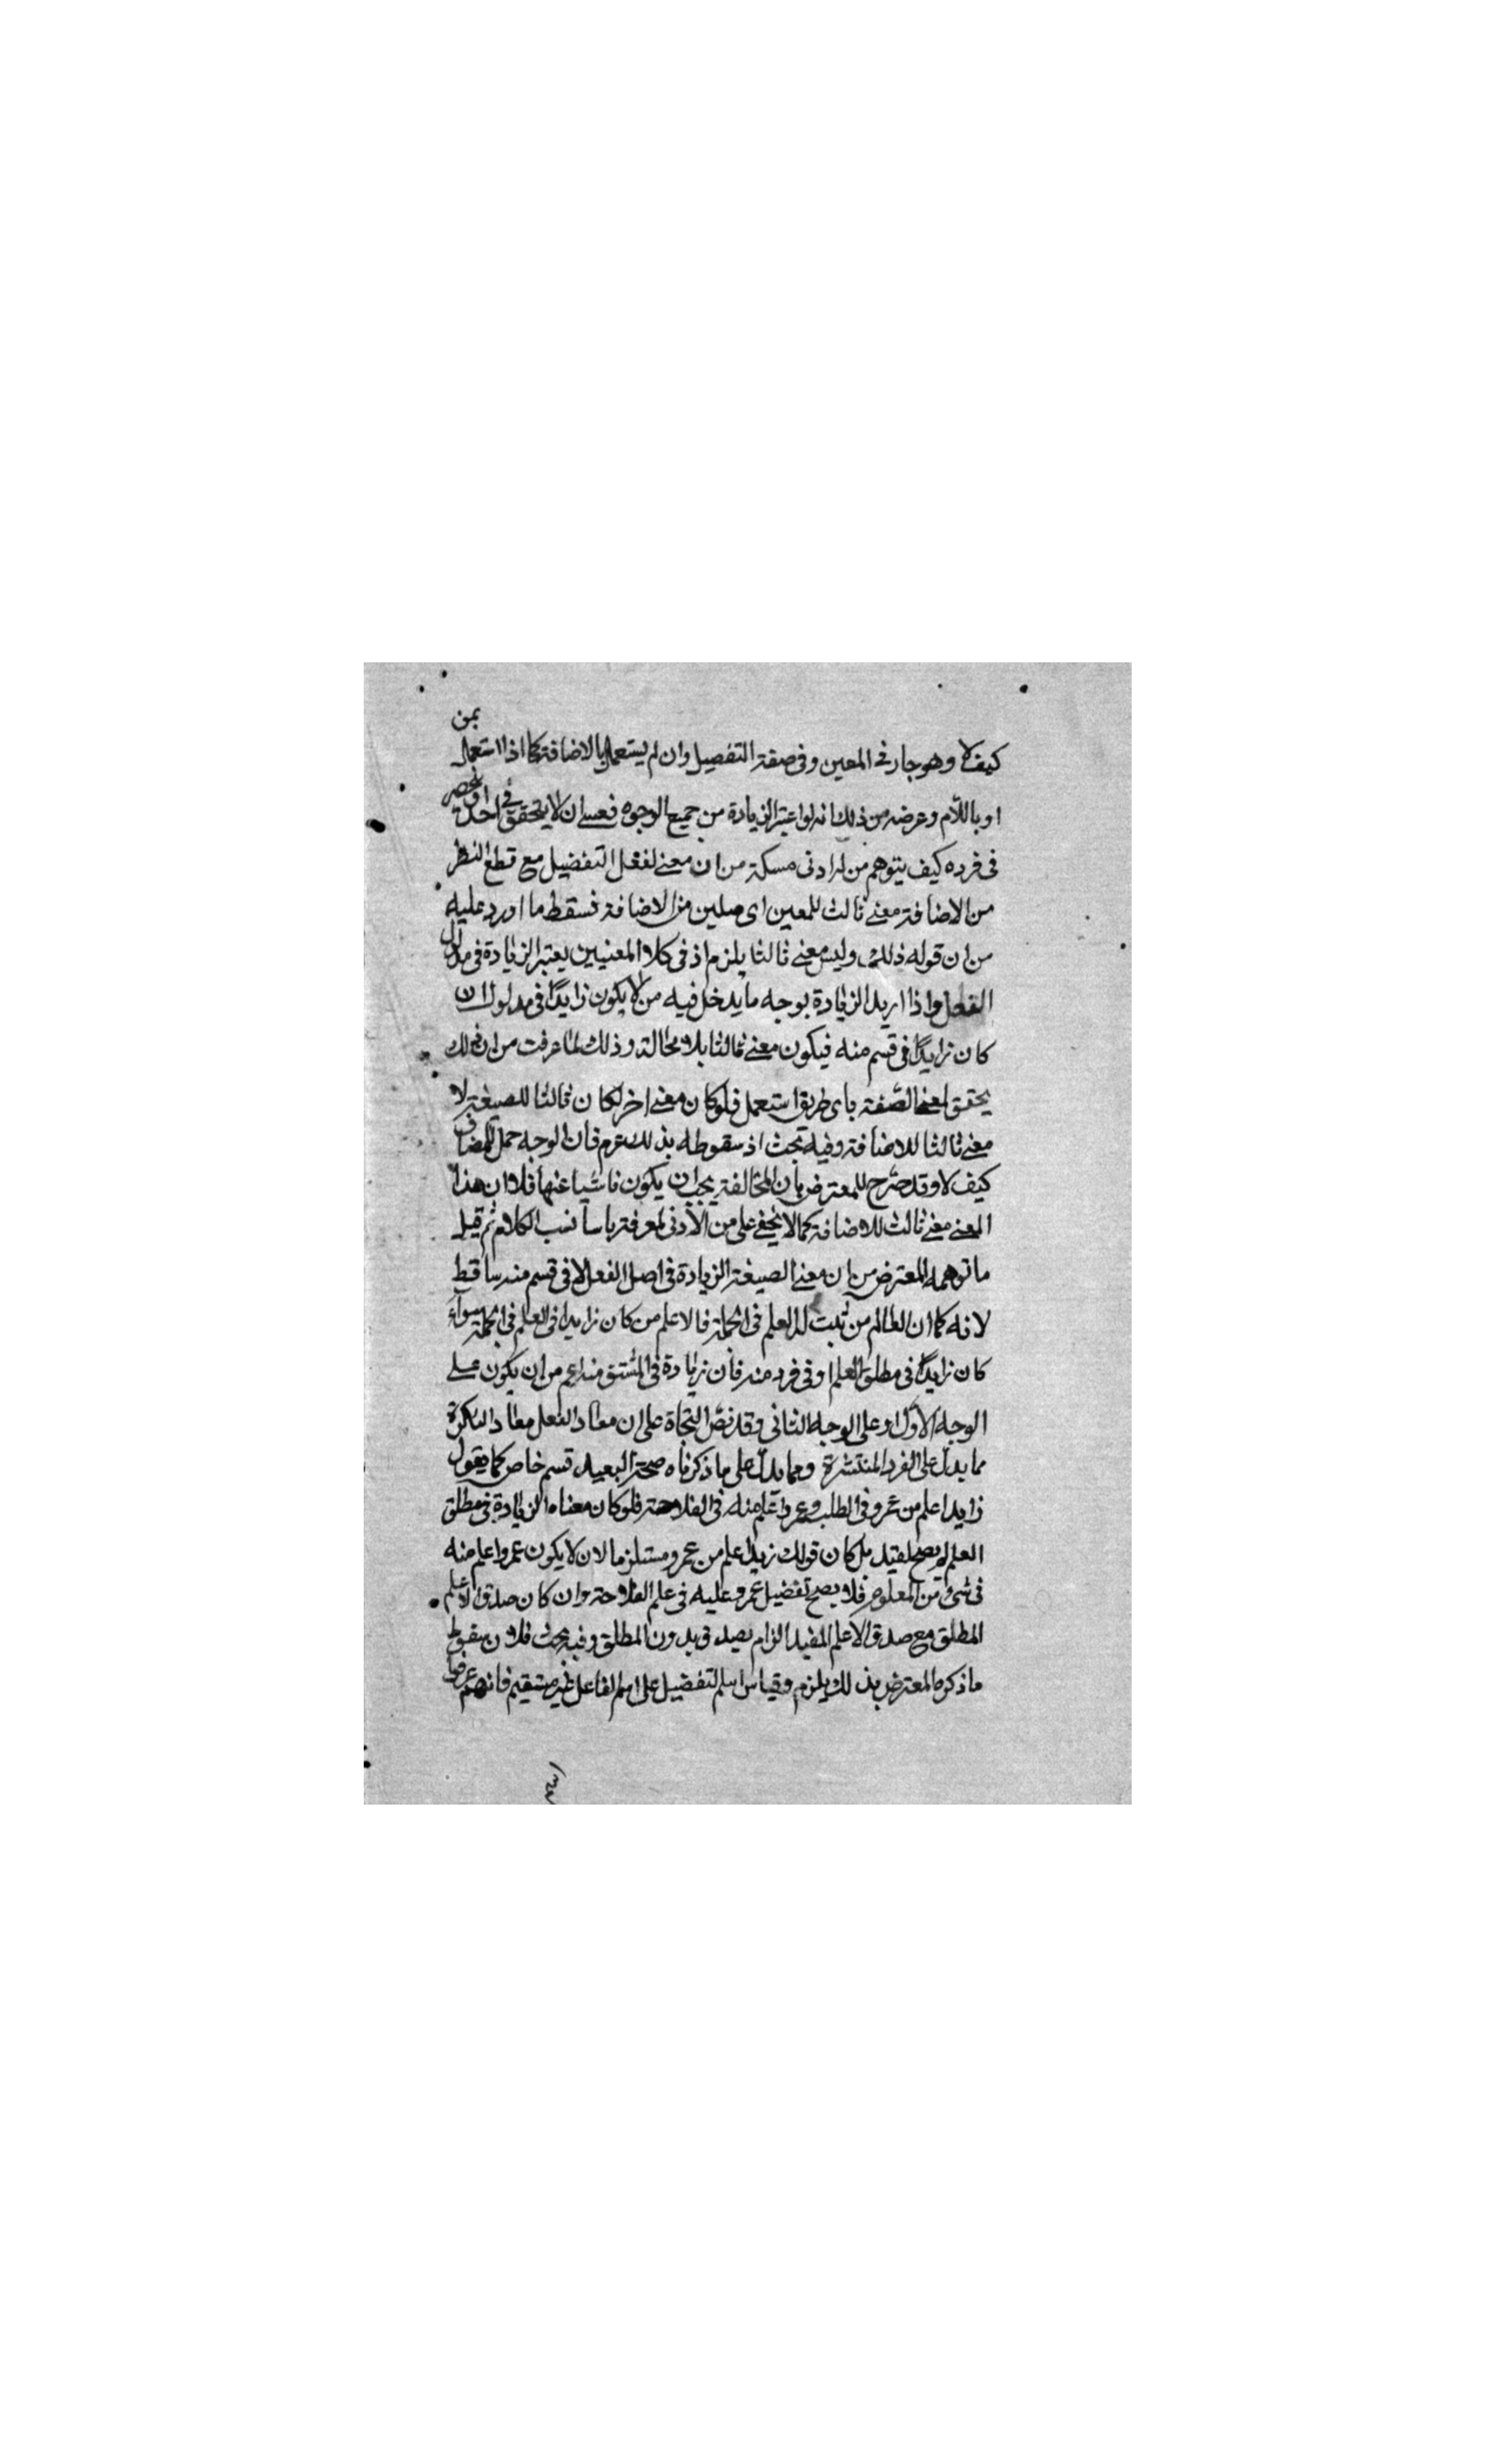 كيف لا وهو جار فى المعين وفى صفة التفضيل وان لم يستعمل بالاضافة كما اذا استعمل بمن
او باللام وغرضه من ذلك انه لو اعتبر الزيادة من جميع الوجوه فعسى ان لا يتحقق فى احد او ينحصر
فى فرده كيف يتوهم من له ادنى مسكة من ان معنى لفعل التفضيل مع قطع النظر
من الاضافة معنى ثالث للمعين اى صلين من الاضافة فسقط ما اورد عليه
من ان قوله ذلك وليس معنى ثالثا يلزم اذ فى كلا المعنيين يعتبر الزيادة فى مدلول
الفعل واذا اريد الزيادة بوجه ما يدخل فيه من لا يكون زايدا فى مدلول ان
كان زايدا فى قسم منه فيكون معنى ثالثا بلا محالة وذلك لما عرفت من ان ذلك
يحقق لمعنى الصفة باى طريق استعمل فلو كان معنى اخر لكان ثالثا للصيغة لا
معنى ثالثا للاضافة وفيه بحث اذ سقوطه بذلك عزم فان الوجه حمل المضاف
كيف لا وقد صرح المعترض بان المخالفة يجب ان يكون ناشيا عنها فلان هذا
المعنى معنى ثالث للاضافة كما لا يخفى على من له ادنى لمعرفة باسانيب الكلام ثم قيل
ما توهمه المعترض من ان معنى الصيغة الزيادة فى اصل الفعل لا فى قسم منه ساقط
لانه كما ان العالم من ثبت له العلم فى الجملة فالاعلم من كان زايدا فى العلم فى الجملة سواء
كان زايدا فى مطلق العلم او فى فرد منه فان زيادة فى المشتق منه اعم من ان يكون على
الوجه الاول او على الوجه الثانى وقد نص النحاة على ان مفاد الفعل مفاد النكرة
مما يدل على الفرد المنتشرة ومما يدل على ما ذكرناه صحة البعيد قسم خاص كما يقول
زايد اعلم من عمرو فى الطلب وعمرو اعلم منه فى الفلاحة فلو كان معناه الزيادة فى مطلق
العلم لم يصح لقيد بل كان قولك زيد اعلم من عمرو مستلزما لان لا يكون عمرو اعلم منه
فى شىء من المعلوم فلا يصح تفضيل عمرو عليه فى علم الفلاحة وان كان صدق الاعلم
المطلق مع صدق الاعلم المقيد الزام يصدق بدون المطلق وفيه بحث فلان سقوط
ما ذكره المعترض بذلك يلزم وقياس اسم التفضيل على اسم الفاعل غير مستقيم فانهم عرفوا
اسم